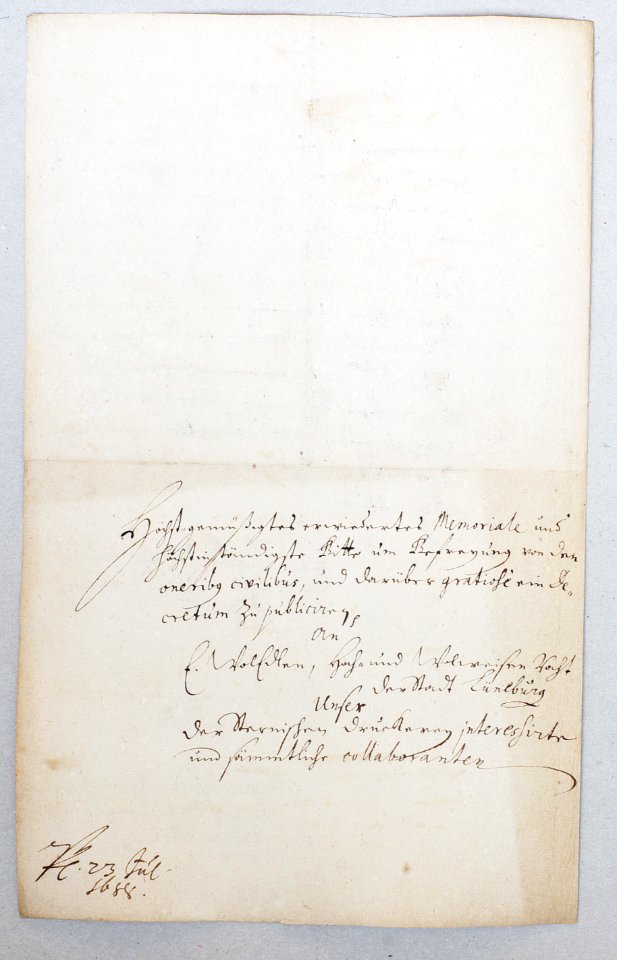 Höchstgemüßigtes erwiedertes Memoriale und
höchstinständigste Bitte um Befreyung von den
oneribg civilibus, und darüber gratiosè ein de-
cretum zu publiciren,
An
E. WolEdlen, Hoch und Wolweisen Raht
der Stadt Lüneburg
Unser
der Sternischen Druckerey interessirte
und sämmtliche collaboranten
23 Jul.
1688.